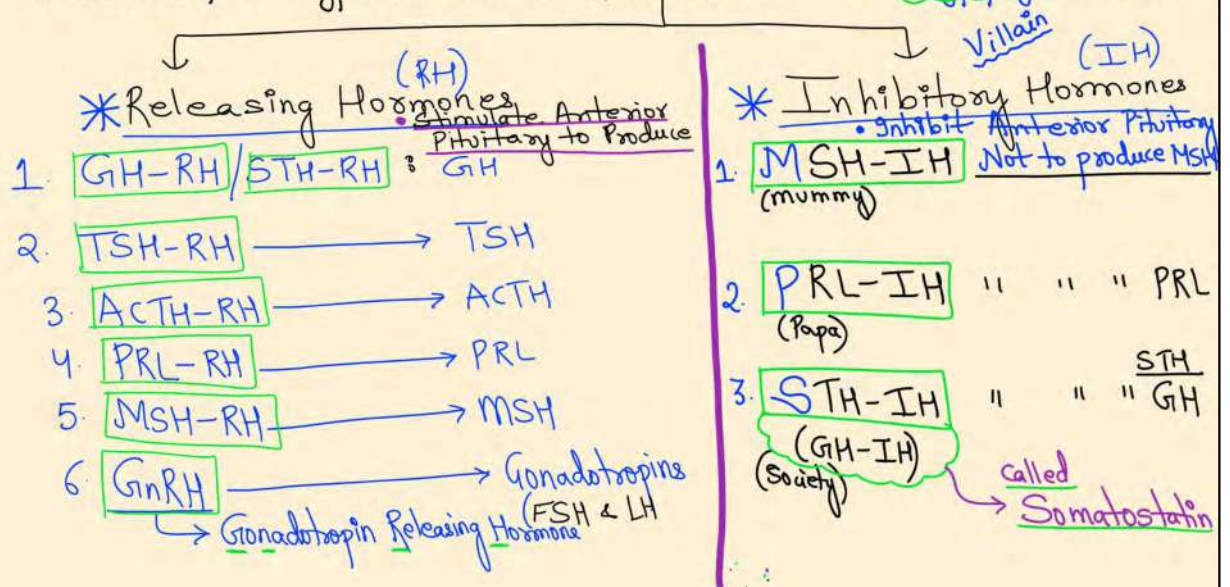 Villain
(RH)
*Releasing Hormones
• Stimulate Anterior
Pituitary to Produce
1. GH-RH/STH-RH : GH
2. TSH-RH → TSH
3. ACTH-RH → ACTH
4. PRL-RH → PRL
5. MSH-RH → MSH
6. GnRH → Gonadotropins
(FSH & LH
→ Gonadotropin Releasing Hormone
(IH)
* Inhibitory Hormones
• Inhibit Anterior Pituitary
1. MSH-IH Not to produce MSH
(mummy)
2. PRL-IH " " " PRL
(Papa)
STH
3. STH-IH " " " GH
(GH-IH)
(Society)
called
→ Somatostatin